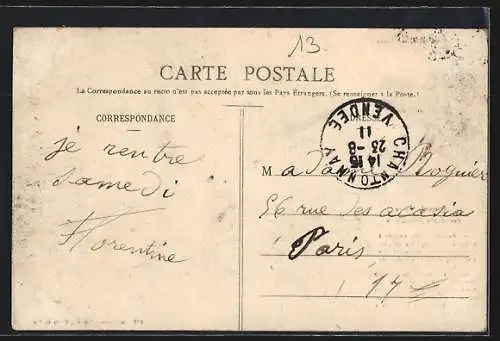 13
CARTE POSTALE
La Correspondance au recto n'est pas acceptée par tous les Pays Étrangers. (Se renseigner à la Poste.)
CORRESPONDANCE
ADRESSE
CHANTONNAY VENDÉE
23 -8
11
je rentre
samedi
Florentine
Madame Rognier
56 rue des acasia
Paris
17